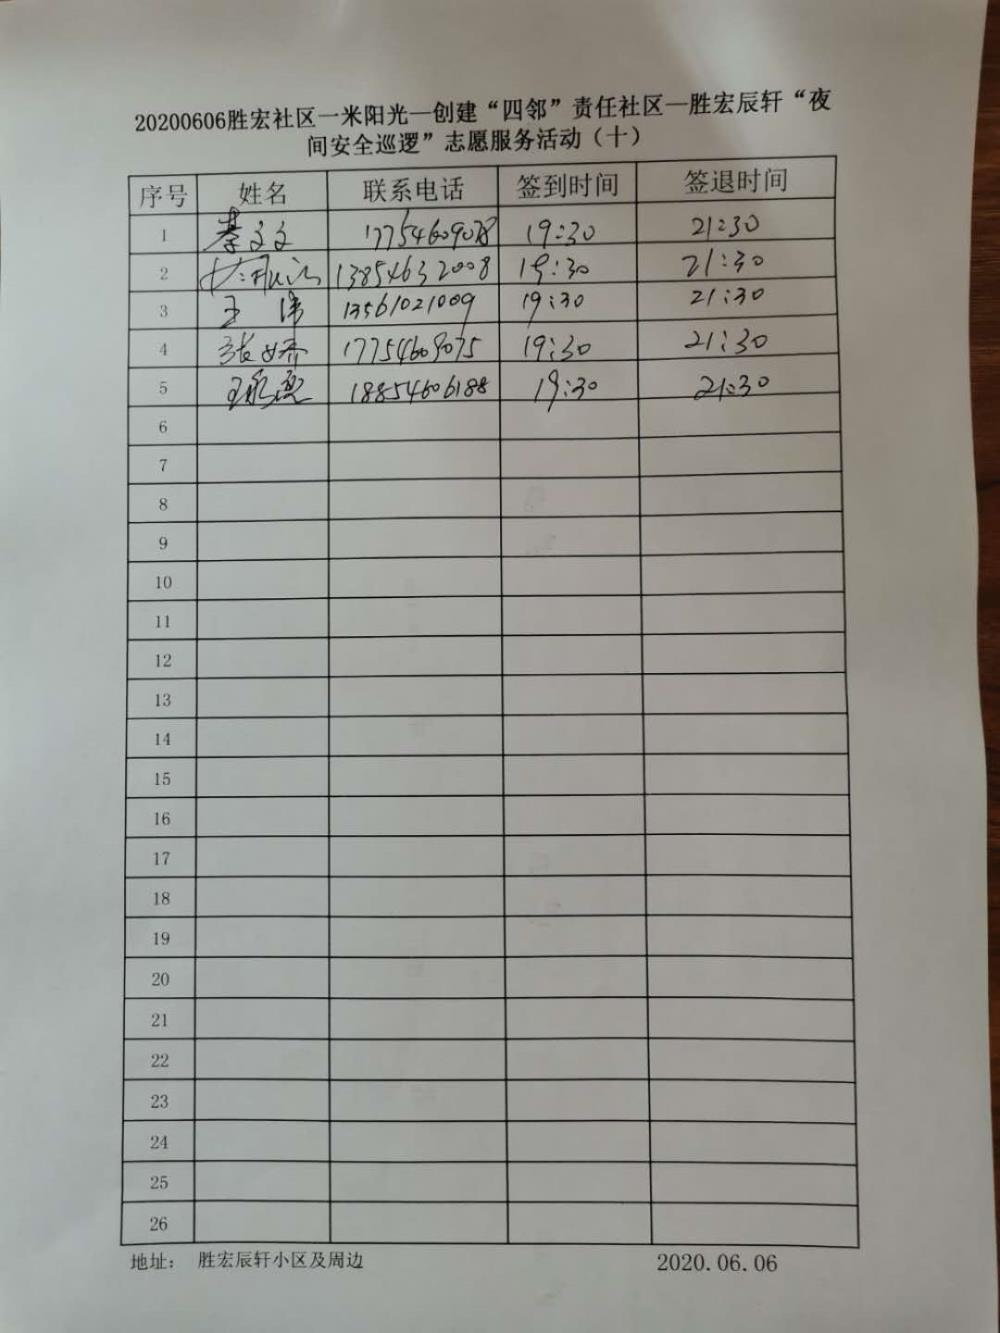 20200606胜宏社区一米阳光—创建“四邻”责任社区—胜宏辰轩“夜
间安全巡逻”志愿服务活动（十）
序号 姓名 联系电话 签到时间 签退时间
1 文文 17754609078 19:30 21:30
2 13854632008 19:30 21:30
3 王伟 13561021009 19:30 21:30
4 张娇 17754609075 19:30 21:30
5 王 18854606188 19:30 21:30
6
7
8
9
10
11
12
13
14
15
16
17
18
19
20
21
22
23
24
25
26
地址： 胜宏辰轩小区及周边 2020.06.06